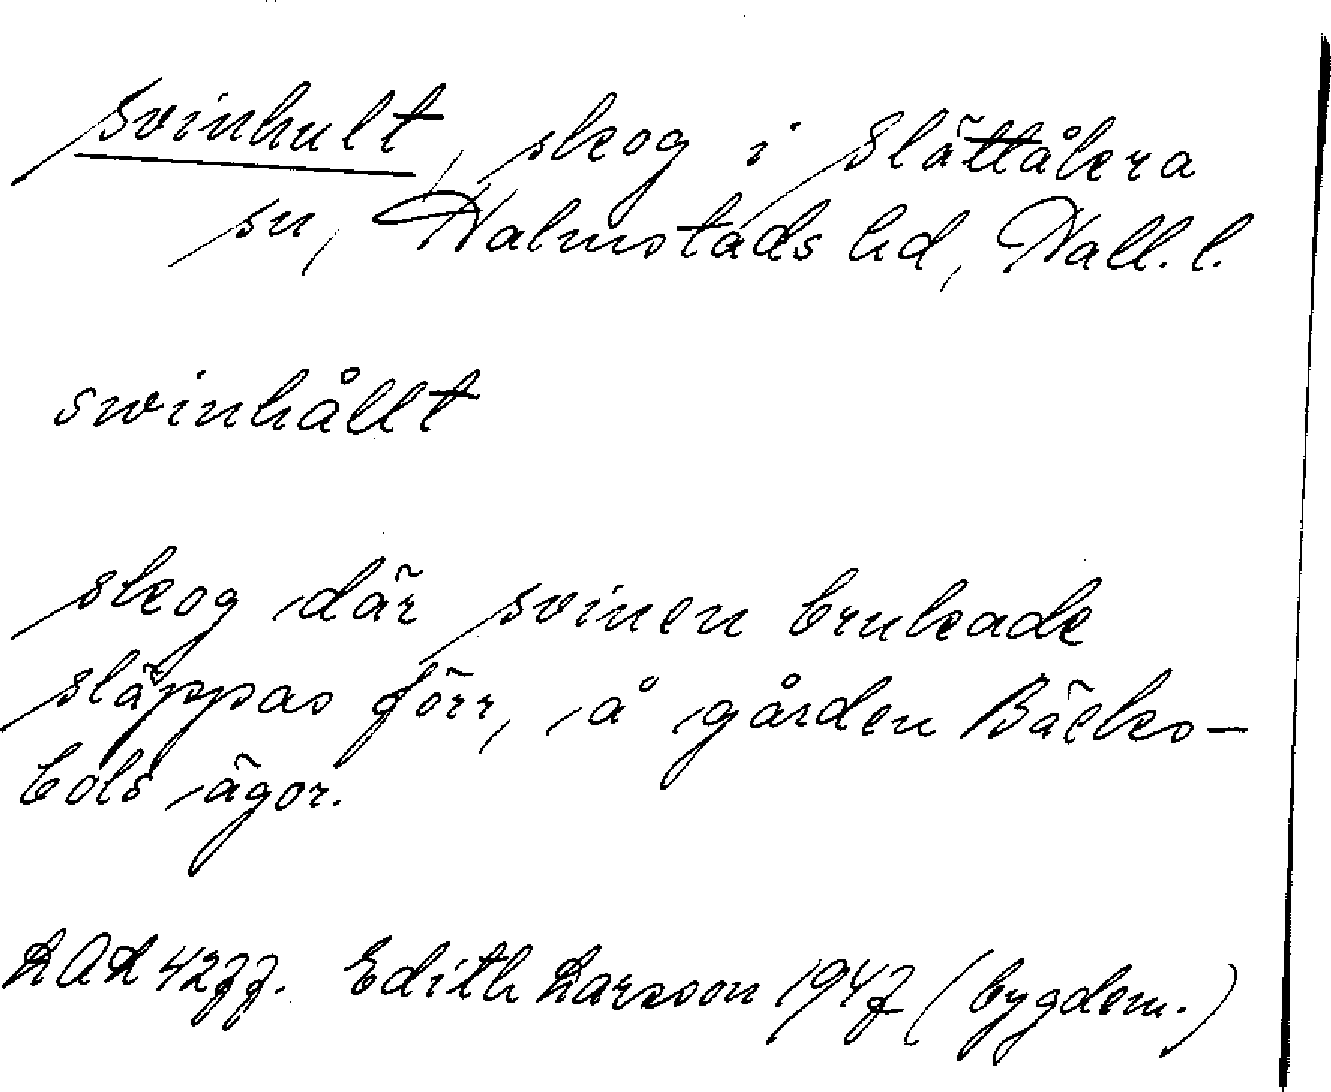 svinhult, skog i Slättåkra
sn, Halmstads hd, Hall. l.
swinhållt
skog där svinen brukade
släppas förr, å gården Bäcks-
bols ägor.
LAL 4277. Edith Larsson 1947 (bygdem.)